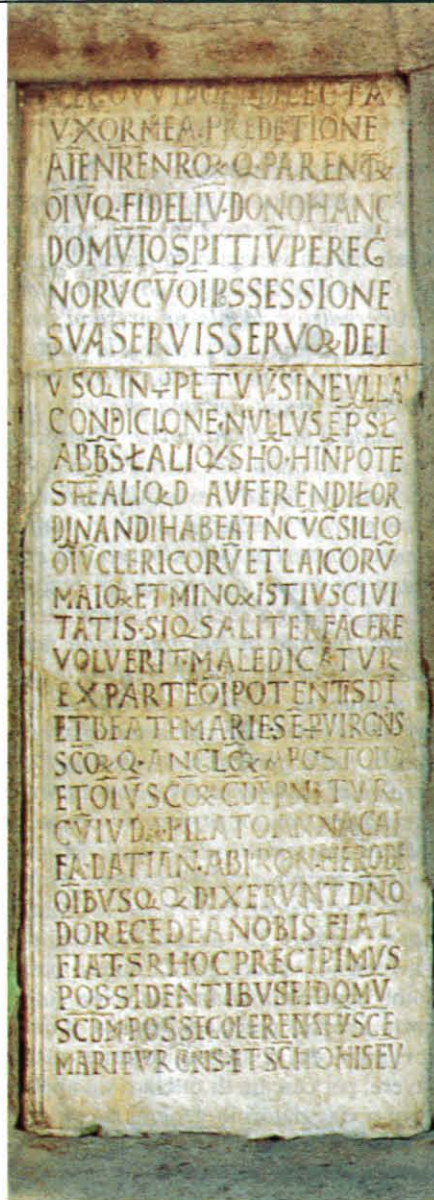 VXOR MEA PREDETIONE
OIVQ FIDELIV DONO HANC
DOMV IOSPITIV PEREG
NORV CV OI PSSESSIONE
SVA SERVIS SERVOꝜ DEI
VSQ IN PETVV SINE VLLA
CONDICIONE NVLLVS EPS Ł
ABBS Ł ALIQS HO HIN POTE
STE ALIQD AVFERENDI Ł OR
DINANDI HABEAT N CV CSILIO
OIV CLERICORV ET LAICORV
MAIOꝜ ET MINOꝜ ISTIVS CIVI
TATIS SI QS ALITER FACERE
VOLVERIT MALEDICATVR
EX PARTE OIPOTENTIS DI
ET BEATE MARIE SEP VIRGNS
SCOꝜ Q ANGLOꝜ APOSTOLOꝜ
ET OIV SCOꝜ CDEPNETVR
CV IVDA PILATO ANNA CAI
FA DATIAN ABIRON HERODE
OIBVSQ Q DIXERVNT DNO
DO RECEDE A NOBIS FIAT
FIAT SR HOC PRECIPIMVS
POSSIDENTIBVS EI DOMV
MARIE VRGNS ET